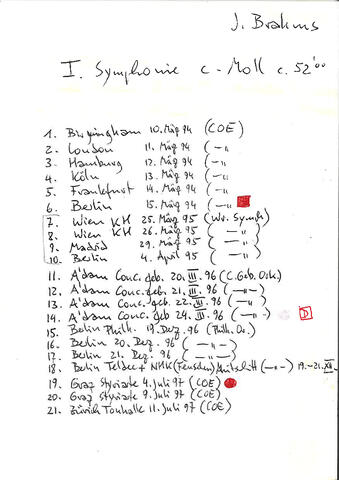 J. Brahms
I. Symphonie c-Moll c. 52'00
1. Birmingham 10. März 94 (COE)
2. London 11. März 94 (-"-)
3. Hamburg 12. März 94 (-"-)
4. Köln 13. März 94 (-"-)
5. Frankfurt 14. März 94 (-"-)
6. Berlin 15. März 94 (-"-)
7. Wien KH 25. März 95 (Wr. Symph)
8. Wien KH 26. März 95 (-"-)
9. Madrid 29. März 95 (-"-)
10. Berlin 4. April 95 (-"-)
11. A'dam Conc.geb. 20. III. 96 (C.Geb.Ork.)
12. A'dam Conc.geb. 21. III. 96 (-"-)
13. A'dam Conc.geb. 22. III. 96 (-"-)
14. A'dam Conc.geb 24. III. 96 (-"-) D
15. Berlin Philh. 19. Dez. 96 (Philh. Or.)
16. Berlin 20. Dez. 96 (-"-)
17. Berlin 21. Dez. 96 (-"-)
18. Berlin Teldec + NHK (Fernsehen) Mitschnitt (-"-) 19.-21. XII.
19. Graz Styriarte 4. Juli 97 (COE)
20. Graz Styriarte 9. Juli 97 (COE)
21. Zürich Tonhalle 11. Juli 97 (COE)